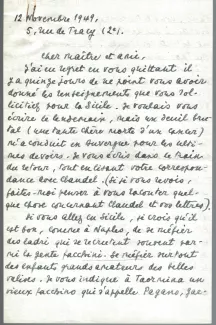 12 Novembre 1949.
5, rue de Tracy (2e).
Cher Maître et ami,
J'ai eu regret en vous quittant il
y a quinze jours de ne point vous avoir
donné les renseignements que vous sol-
licitiez pour la Sicile. Je voulais vous
écrire le lendemain, mais un deuil bru-
tal (une tante chère morte d'un cancer)
m'a conduit en Auvergne pour les ulti-
mes devoirs. Je vous écris dans le train
du retour, tout en lisant votre correspon-
dance avec Claudel. (Si je vous revois,
faites-moi penser à vous raconter quel-
que chose concernant Claudel et vos lettres).
Si vous allez en Sicile, je crois qu'il
est bon, comme à Naples, de se méfier
des ladri qui se recrutent souvent par-
mi la gente facchini. Se méfier surtout
des enfants grands amateurs des belles
valises. Je vous indique à Taormina un
vieux facchino qui s'appelle Pagano,